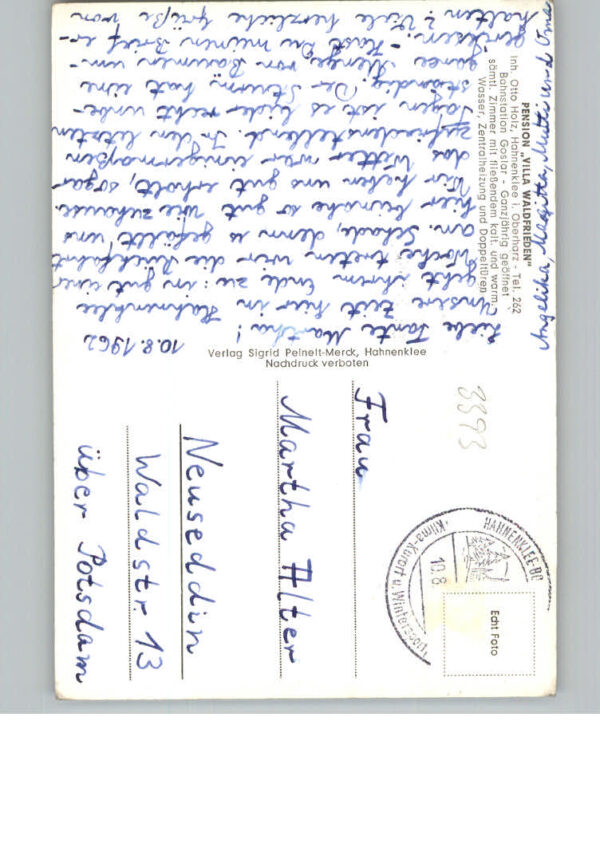 PENSION „VILLA WALDFRIEDEN"
Inh. Otto Holz, Hahnenklee i. Oberharz - Tel. 262
Bahnstation Goslar - Ganzjährig geöffnet
sämtl. Zimmer mit fließendem kalt. und warm.
Wasser, Zentralheizung und Doppeltüren
10.8.1962
Liebe Tante Martha!
Unsere Zeit hier in Hahnenklee
geht ihrem Ende zu; in gut einer
Woche treten wir die Rückfahrt
an. Schade, denn es gefällt uns
hier beinahe so gut wie zuhause.
Wir haben uns gut erholt, sogar
das Wetter war einigermaßen
zufriedenstellend. In den letzten
Tagen ist es leider recht unbe-
ständig. Der Sturm hat eine
ganze Menge von Bäumen um-
gerissen. - Hast Du meinen Brief er-
halten? Viele herzliche Grüße von
Angelika, Magitta, Mutti und
Verlag Sigrid Peinelt-Merck, Hahnenklee
Nachdruck verboten
3393
HAHNENKLEE-BO
10.8
Klima-Kurort u. Wintersport
Echt Foto
Frau
Martha Alter
Neuseddin
Waldstr. 13
über Potsdam